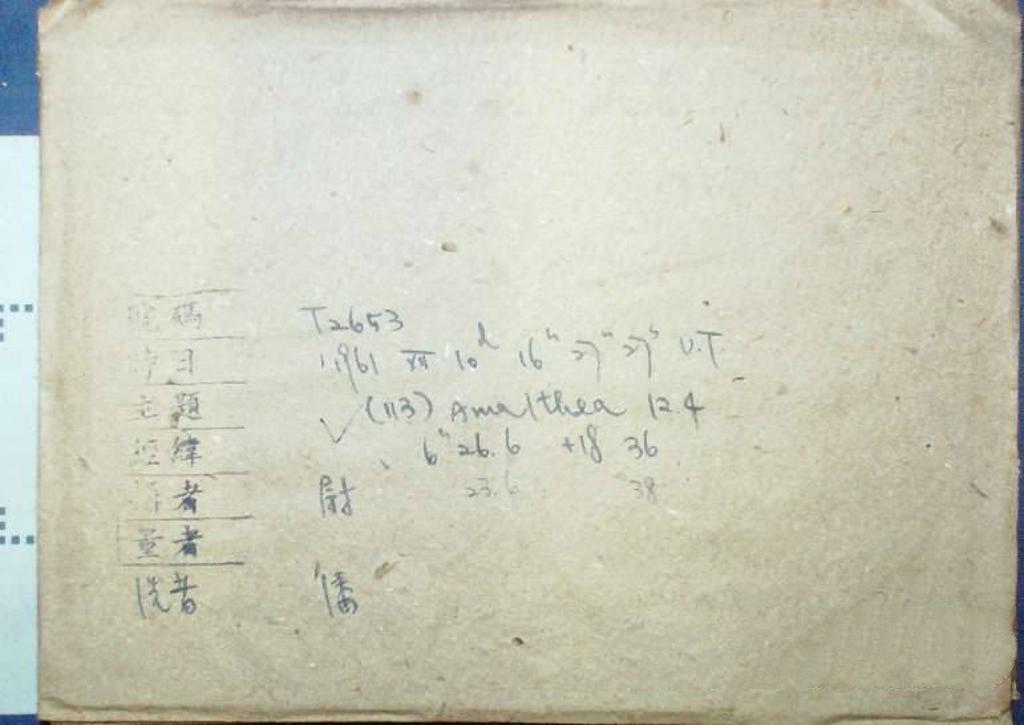 號碼 T2653
時日 1961 XII 10ᵈ 16ʰ 27ᵐ 27ˢ U.T.
主題 ✓ (113) Amalthea 12.4
經緯 6ʰ 26.6 +18 36
23.6 38
者 尉
量者
洗者 潘